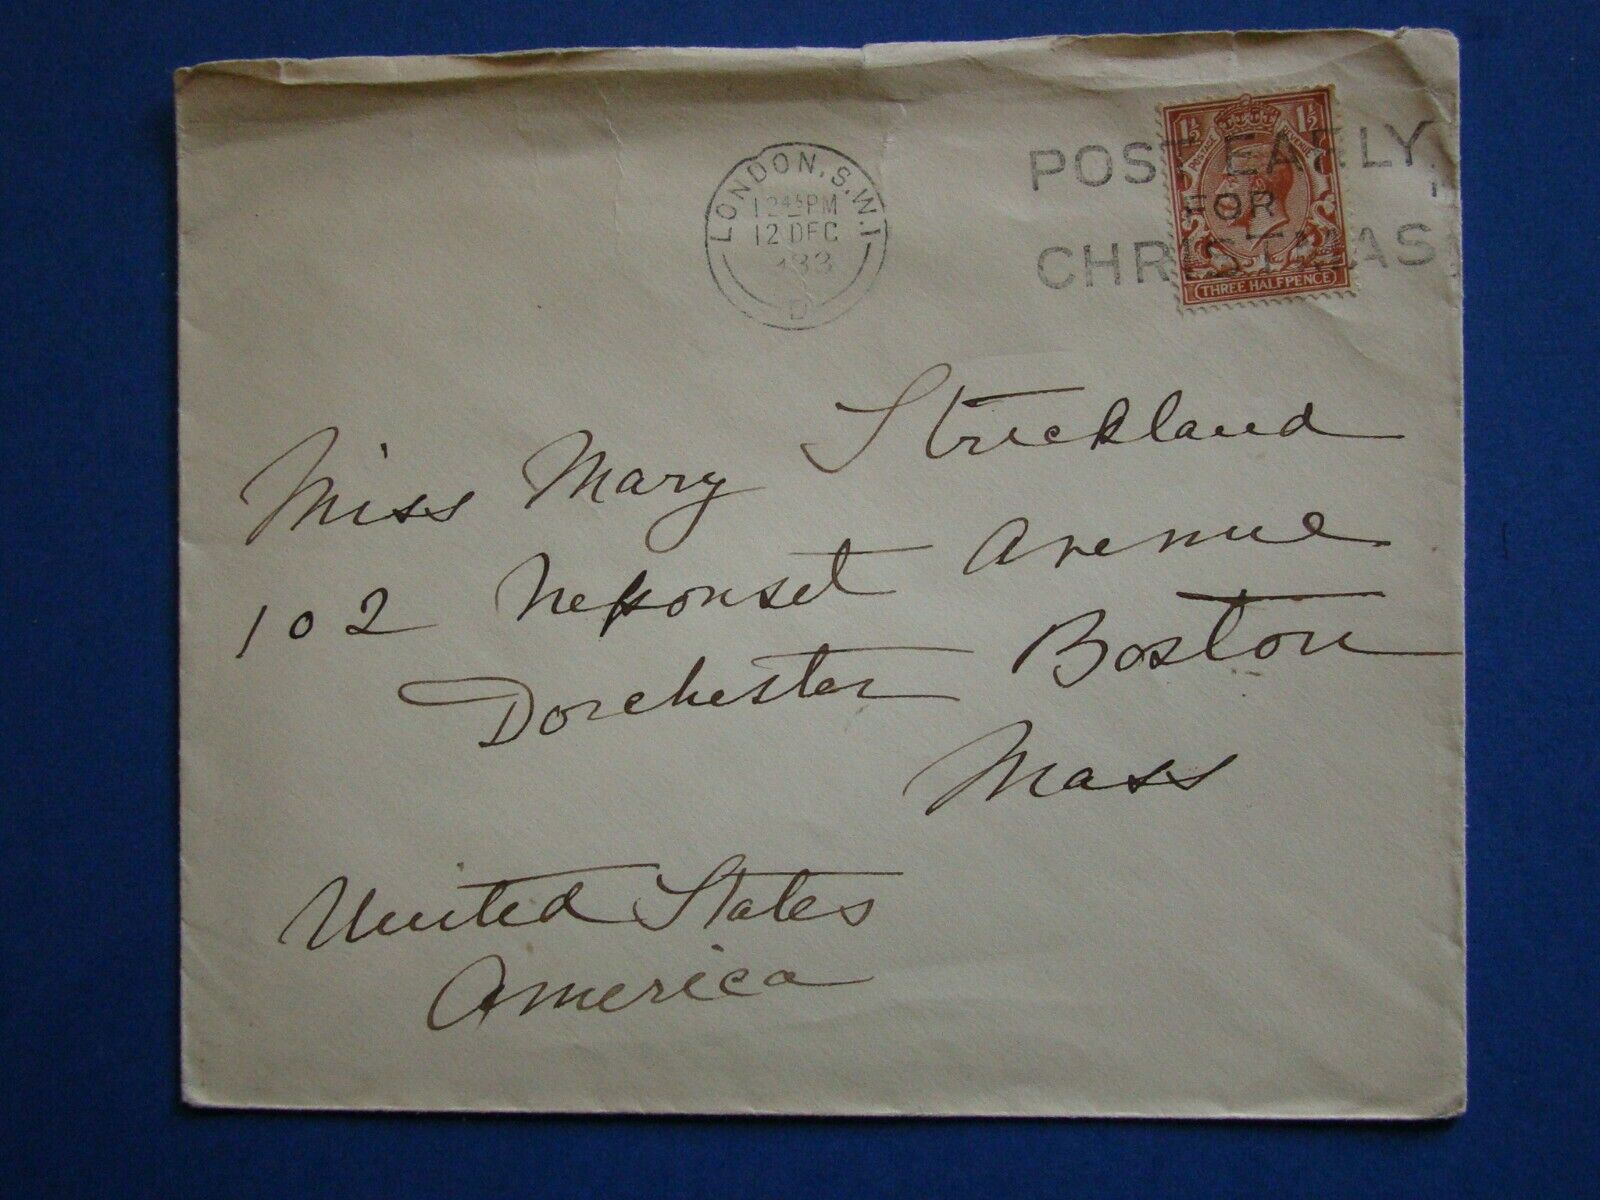 LONDON.S.W.1
12 45 PM
12 DEC
1933
D
POST EARLY
FOR
CHRISTMAS
1½ 1½
POSTAGE REVENUE
THREE HALFPENCE
Miss Mary Strickland
102 Neponset Avenue
Dorchester Boston
Mass
United States
America